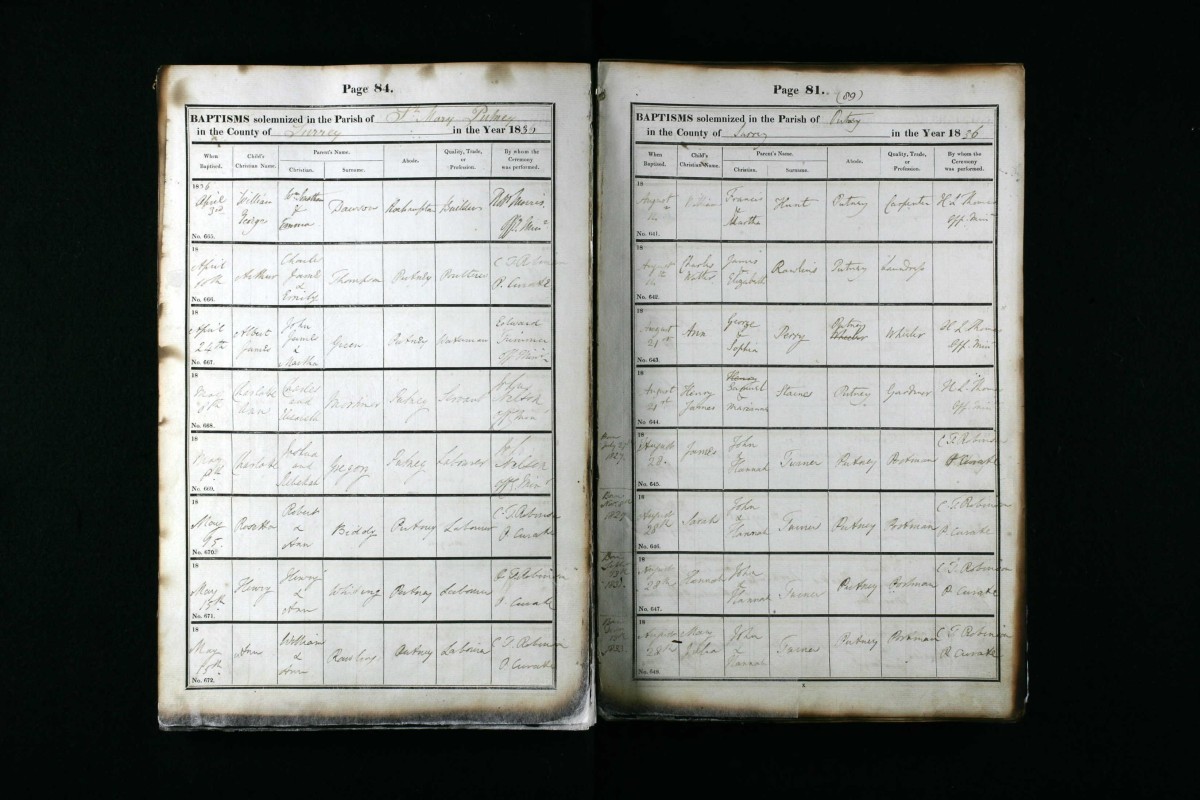 Page 84.
BAPTISMS solemnized in the Parish of St Mary Putney
in the County of Surrey in the Year 1836
When Baptised. Child's Christian Name. Parent's Name. Christian. Surname. Abode. Quality, Trade, or Profession. By whom the Ceremony was performed.
1836
April 3rd
No. 665.
William George
Emma
Dawson
Roehampton
Builder
Offg. Minr
18
April 10th
No. 666.
Arthur
Charles David & Emily
Thompson
Putney
C T Robinson
P. Curate
18
April 24th
No. 667.
Albert James
John James & Martha
Green
Putney
Waterman
Edward
Off Minr
18
May
No. 668.
Charlotte
Charles and
Mortimer
Putney
Servant
John
Off. Minr
18
May 8th
No. 669.
Charlotte
Joshua and
Gregory
Putney
Labourer
Off. Minr
18
May
No. 670.
Robert & Ann
Biddy
Putney
Labourer
C. T. Robinson
P Curate
18
May 15th
No. 671.
Henry
Henry & Ann
Whiting
Putney
Labourer
C T Robinson
P Curate
18
May 15th
No. 672.
Ann
William & Ann
Putney
Labourer
C T Robinson
P. Curate
Page 81. (89)
BAPTISMS solemnized in the Parish of Putney
in the County of Surrey in the Year 1836
When Baptised. Child's Christian Name. Parent's Name. Christian. Surname. Abode. Quality, Trade, or Profession. By whom the Ceremony was performed.
18
August
No. 641.
William
Francis & Martha
Hunt
Putney
Carpenter
H L Thomas
Off. Minr
18
August
No. 642.
Charles Walter
James & Elizabeth
Rawlins
Putney
Laundress
18
August 21st
No. 643.
Ann
George & Sophia
Perry
Putney
Wheeler
Wheeler
H L Thomas
Off. Minr
18
August 21st
No. 644.
Henry James
Henry
Samuel & Marianne
Staines
Putney
Gardener
H L Thomas
Off. Minr
Born July
1827.
18
August 28.
No. 645.
James
John & Hannah
Turner
Putney
Postman
C T Robinson
P Curate
Born
1829
18
August 28th
No. 646.
Sarah
John & Hannah
Turner
Putney
Postman
C T Robinson
P Curate
Born
18
August 28th
No. 647.
Hannah
John & Hannah
Turner
Putney
Postman
C T Robinson
P Curate
Born
18
August 28th
No. 648.
Mary
John & Hannah
Turner
Putney
Postman
C T Robinson
P Curate